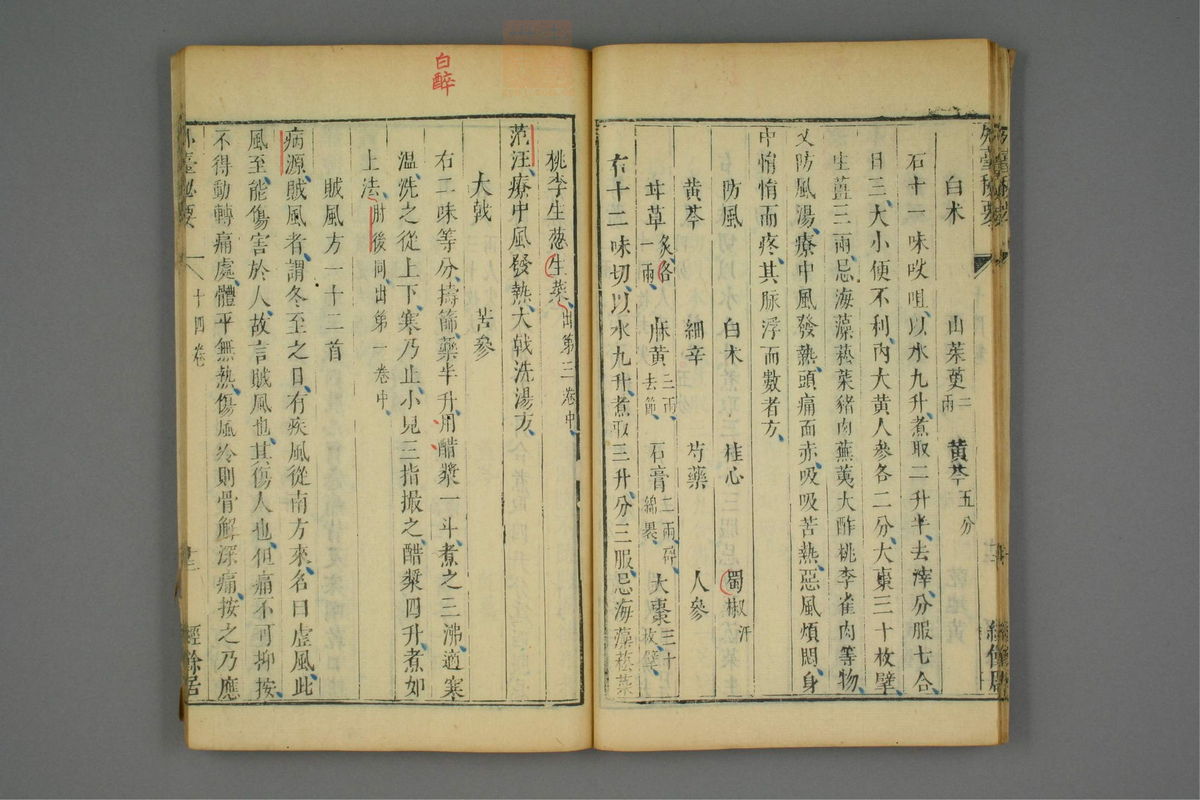 白术　山茱萸二兩　黃芩五分
右十一味㕮咀以水九升煮取二升半去滓分服七合
日三大小便不利內大黃人參各二分大棗三十枚擘
生薑三兩忌海藻菘菜豬肉蕪荑大酢桃李雀肉等物
又防風湯療中風發熱頭痛面赤吸吸苦熱惡風煩悶身
中㥽㥽而疼其脉浮而數者方
防風　白术　桂心　蜀椒汗
黃芩　細辛　芍藥　人參
甘草炙各一兩　麻黃三兩去節　石膏二兩碎綿裹　大棗三十枚擘
右十二味切以水九升煮取三升分三服忌海藻菘菜
桃李生葱生菜出第三卷中
范汪療中風發熱大戟洗湯方
大戟　苦參
右二味等分擣篩藥半升用醋漿一斗煮之三沸適寒
溫洗之從上下寒乃止小兒三指撮之醋漿四升煮如
上法肘後同出第一卷中
賊風方一十二首
病源賊風者謂冬至之日有疾風從南方來名曰虛風此
風至能傷害於人故言賊風也其傷人也但痛不可抑按
不得動轉痛處體平無熱傷風冷則骨解深痛按之乃應
外臺秘要　十四卷　十二　經餘居
白醉